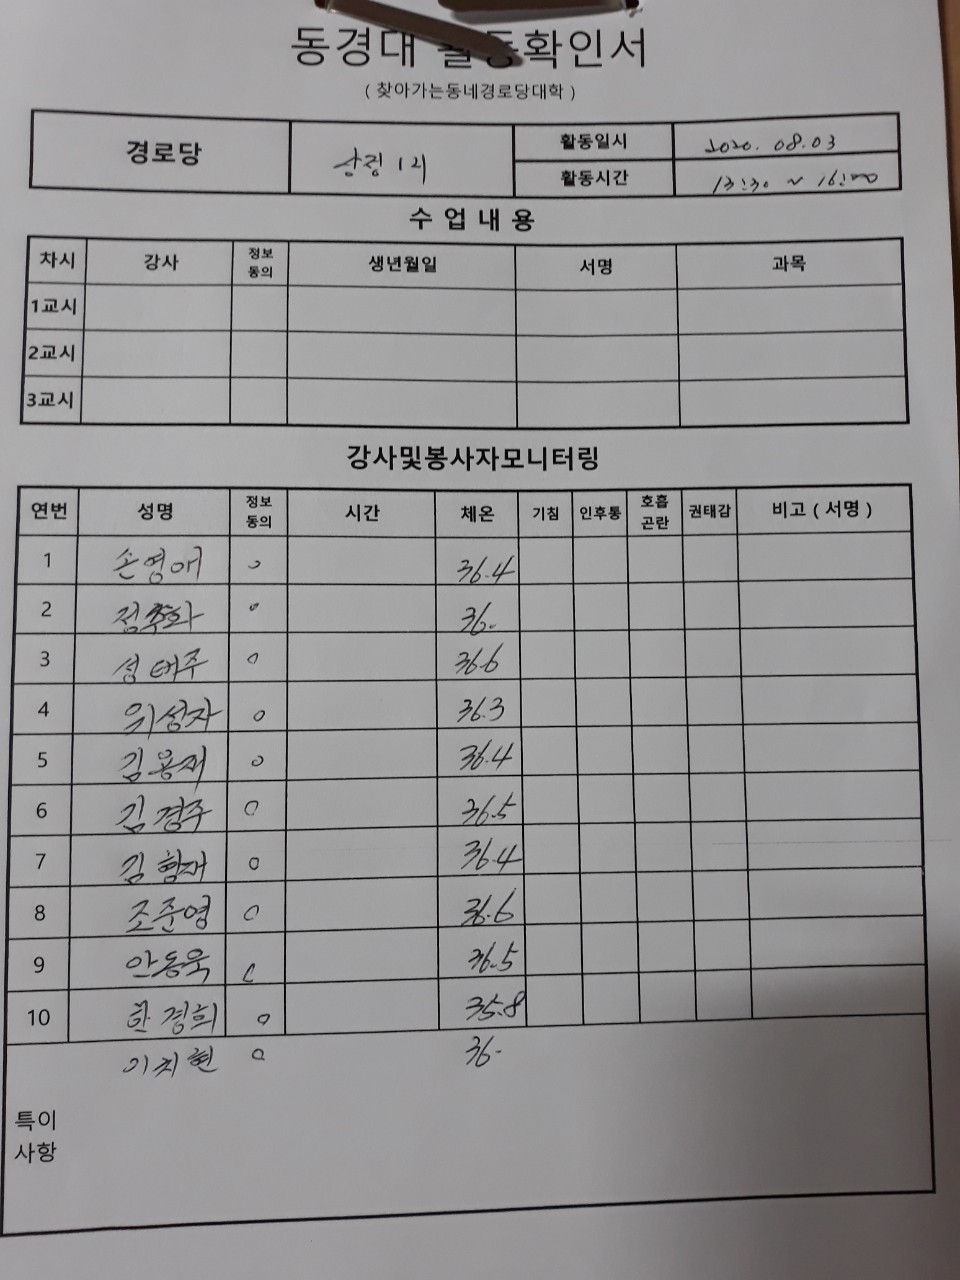 동경대 활동확인서
( 찾아가는동네경로당대학 )
경로당 상정 1리 활동일시 2020. 08.03
활동시간 13:30 ~ 16:00
수 업 내 용
차시 강사 정보동의 생년월일 서명 과목
1교시
2교시
3교시
강사및봉사자모니터링
연번 성명 정보동의 시간 체온 기침 인후통 호흡곤란 권태감 비고 ( 서명 )
1 손영애 ○ 36.4
2 ○ 36.
3 성태주 ○ 36.6
4 위성자 ○ 36.3
5 김용재 ○ 36.4
6 김경주 ○ 36.5
7 김항재 ○ 36.4
8 조준영 ○ 36.6
9 안동욱 ○ 36.5
10 한경희 ○ 35.8
이지현 ○ 36.
특이
사항